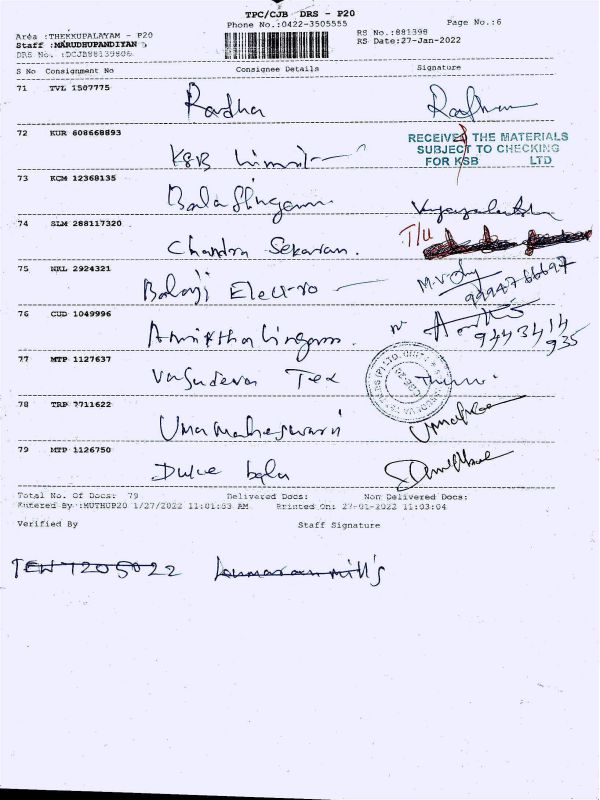 TPC/CJB DRS - P20
Phone No.:0422-3505555
Page No.:6
Area :THEKKUPALAYAM - P20
RS No.:881398
Staff :MARUDHUPANDIYAN
RS Date:27-Jan-2022
DRS No. :DCJB88139806
S No Consignment No Consignee Details Signature
71 TVL 1507775 Radha
72 KUR 608668893 KSB Limit
RECEIVED THE MATERIALS
SUBJECT TO CHECKING
FOR KSB LTD
73 KCM 12368135 Vijayalakshmi
74 SLM 288117320 Chandra Sekaran. T/U
75 NKL 2924321 Balaji Electro
9994766697
76 CUD 1049996
9443414
935
77 MTP 1127637 Vasudeva Tex
78 TRP 7711622 Umamaheswari
79 MTP 1126750
Total No. Of Docs: 79 Delivered Docs: Non Delivered Docs:
Entered By :MUTHUP20 1/27/2022 11:01:53 AM Printed On: 27-01-2022 11:03:04
Verified By Staff Signature
TEN 7205022 Kumaran mill's